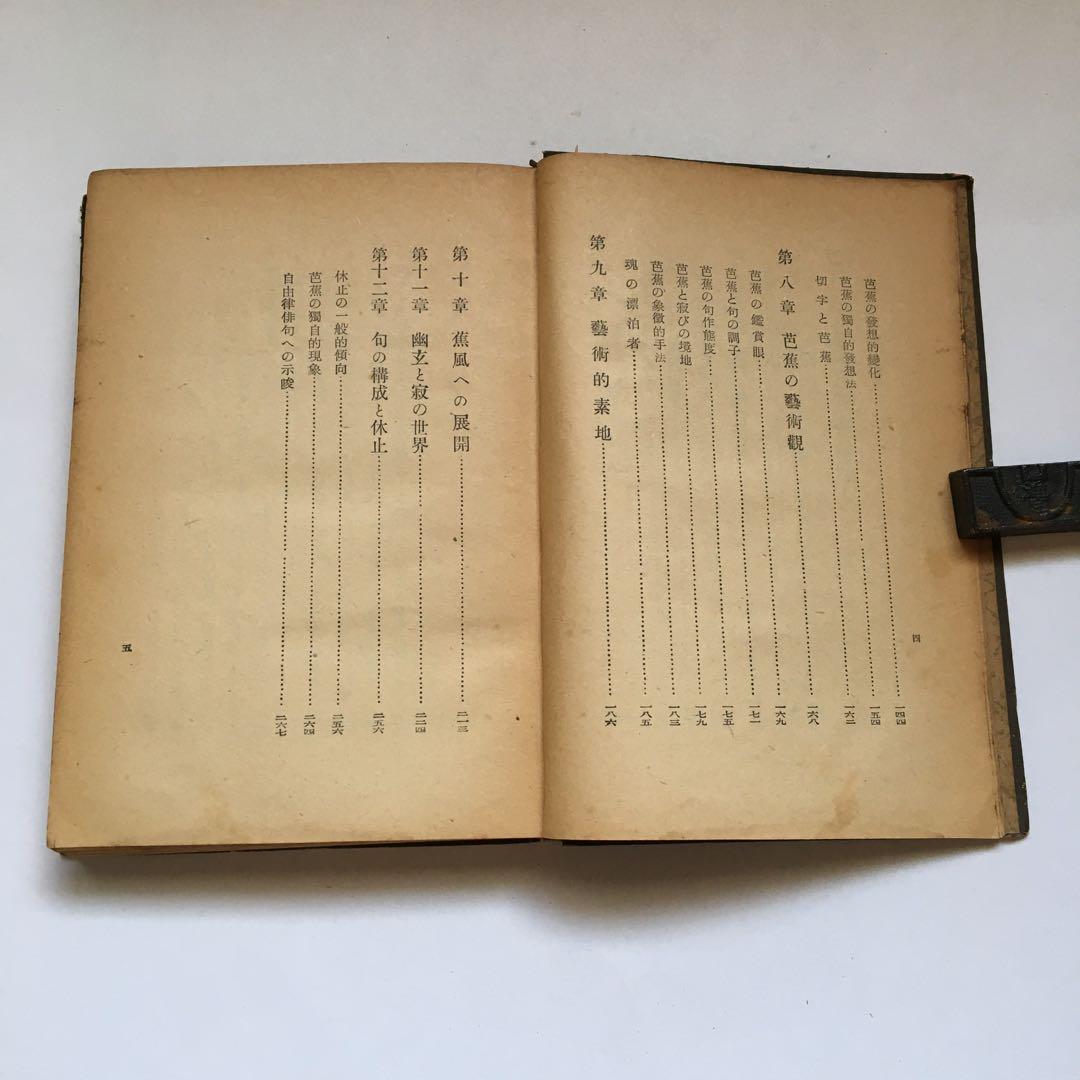 芭蕉の發想的變化……一四四
芭蕉の獨自的發想法……一五四
切字と芭蕉……一六二
第八章 芭蕉の藝術觀……一六八
芭蕉の鑑賞眼……一六九
芭蕉と句の調子……一七一
芭蕉の句作態度……一七五
芭蕉と寂びの境地……一七九
芭蕉の象徵的手法……一八三
魂の漂泊者……一八五
第九章 藝術的素地……一八六
四
第十章 蕉風への展開……二一三
第十一章 幽玄と寂の世界……二二四
第十二章 句の構成と休止……二五六
休止の一般的傾向……二五六
芭蕉の獨自的現象……二六四
自由律俳句への示唆……二六七
五